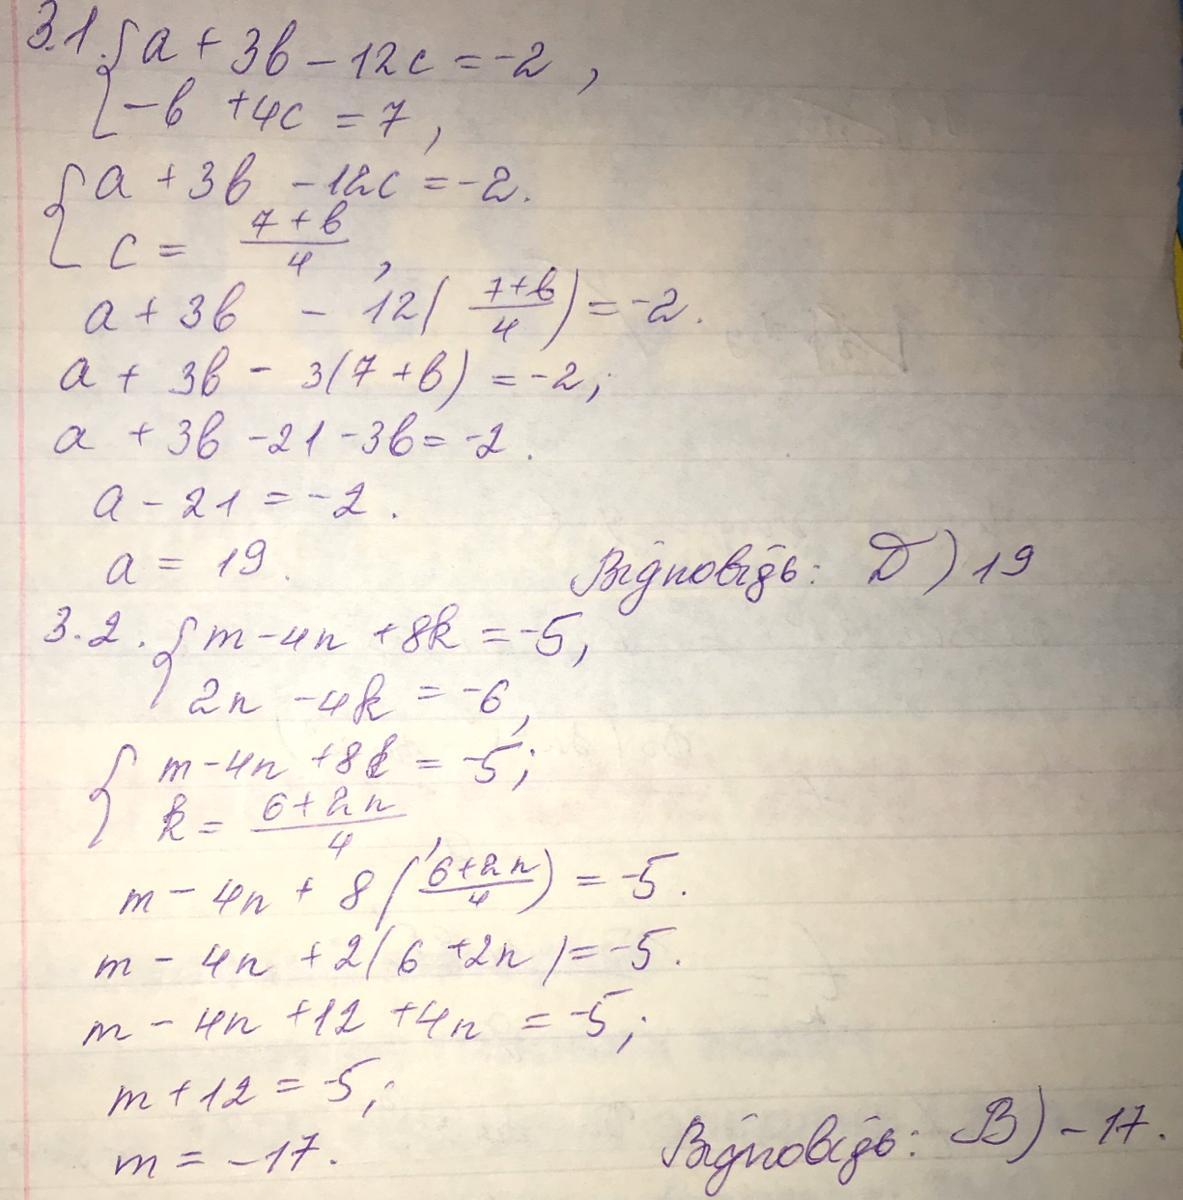 3.1. { a + 3b - 12c = -2,
-b + 4c = 7,
{ a + 3b - 12c = -2.
c = (7 + b)/4,
a + 3b - 12((7+b)/4) = -2.
a + 3b - 3(7 + b) = -2;
a + 3b - 21 - 3b = -2.
a - 21 = -2.
a = 19.
Відповідь: D) 19
3.2. { m - 4n + 8k = -5,
2n - 4k = -6,
{ m - 4n + 8k = -5;
k = (6 + 2n)/4,
m - 4n + 8((6+2n)/4) = -5.
m - 4n + 2(6 + 2n) = -5.
m - 4n + 12 + 4n = -5;
m + 12 = -5;
m = -17.
Відповідь: B) -17.